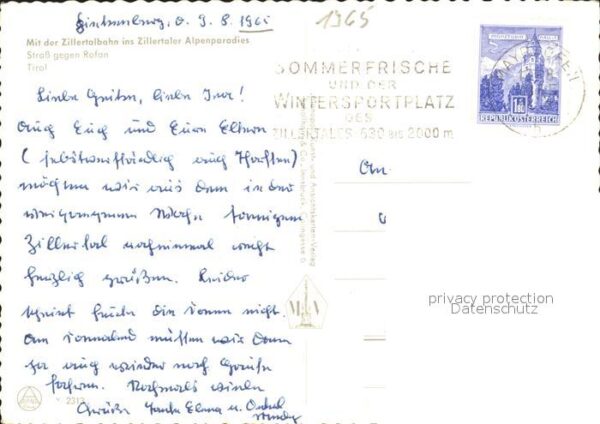 9. 8. 1965
1965
Mit der Zillertalbahn ins Zillertaler Alpenparadies
Straß gegen Rofan
Tirol
MAYRHOFEN
SOMMERFRISCHE
UND DER
WINTERSPORTPLATZ
DES
ZILLERTALES · 630 bis 2000 m
REPUBLIK ÖSTERREICH
Liebe Gritta, liebe
Auch Euch und Euren Eltern
(selbstverständlich auch Thorsten)
möchten wir aus dem in der
vergangenen Woche sonnigen
Zillertal nocheinmal recht
herzlich grüßen. Leider
scheint heute die Sonne nicht.
Am Sonnabend müssen wir dann
ja auch wieder nach Hause
fahren. Nochmals viele
Grüße Tante Elena u. Onkel
An
privacy protection
Datenschutz
2313